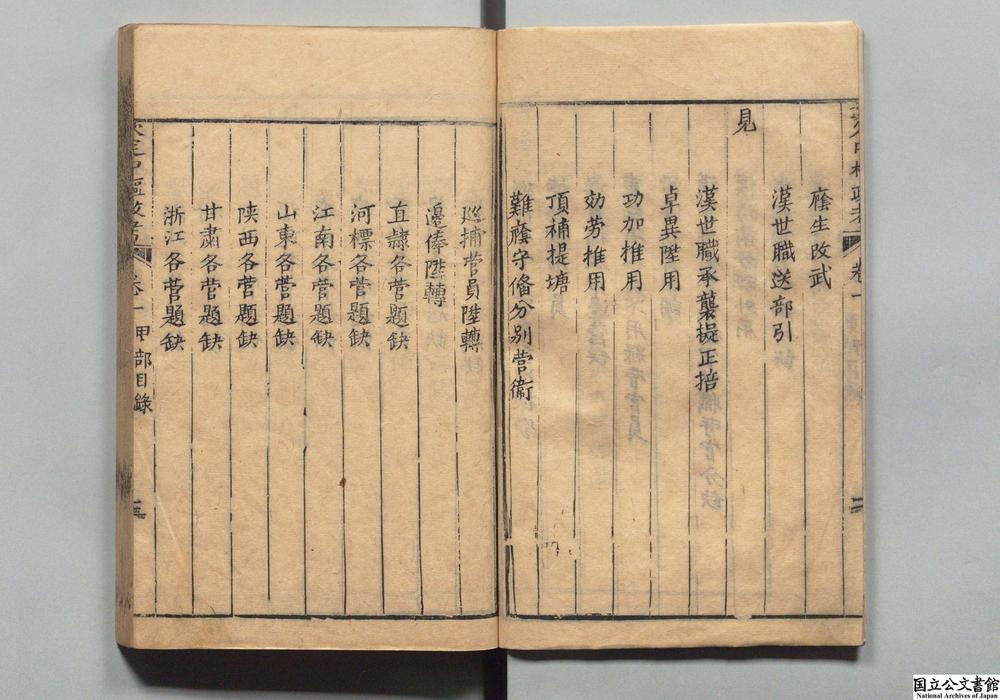 廕生改武
漢世職送部引
見
漢世職承襲擬正揞
卓異陞用
功加推用
効劳推用
頂補提塘
難廕守俻分别营衛
巡捕营員陞轉
邊俸陞轉
直隷各营題缺
河標各营題缺
江南各营題缺
山東各营題缺
陕西各营題缺
甘肅各营題缺
浙江各营題缺
卷一甲部目錄
国立公文書館
National Archives of Japan